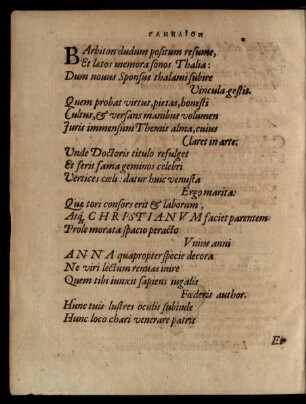 ΓΑΜΗΛΙΟΝ
BArbiton dudum positum resume,
Et latos memora sonos Thalia:
Dum nouus Sponsus thalami subire
Vincula gestit.
Quem probat virtus, pietas, honesti
Cultus, & versans manibus volumen
Juris immensum Themis alma, cuius
Claret in arte:
Unde Doctoris titulo refulget
Et ferit fama geminos celebri
Vertices cœli: datur huic venusta
Ergo marita:
Quæ tori consors erit & laborum,
Atq; CHRISTIANVM faciet parentem
Prole morata spacio peracto
Vnius anni
ANNA quapropter specie decora
Ne viri lectum renuas inire
Quem tibi iunxit sapiens iugalis
Fœderis author.
Hunc tuis lustres oculis subinde
Hunc loco chari venerare patris
Et